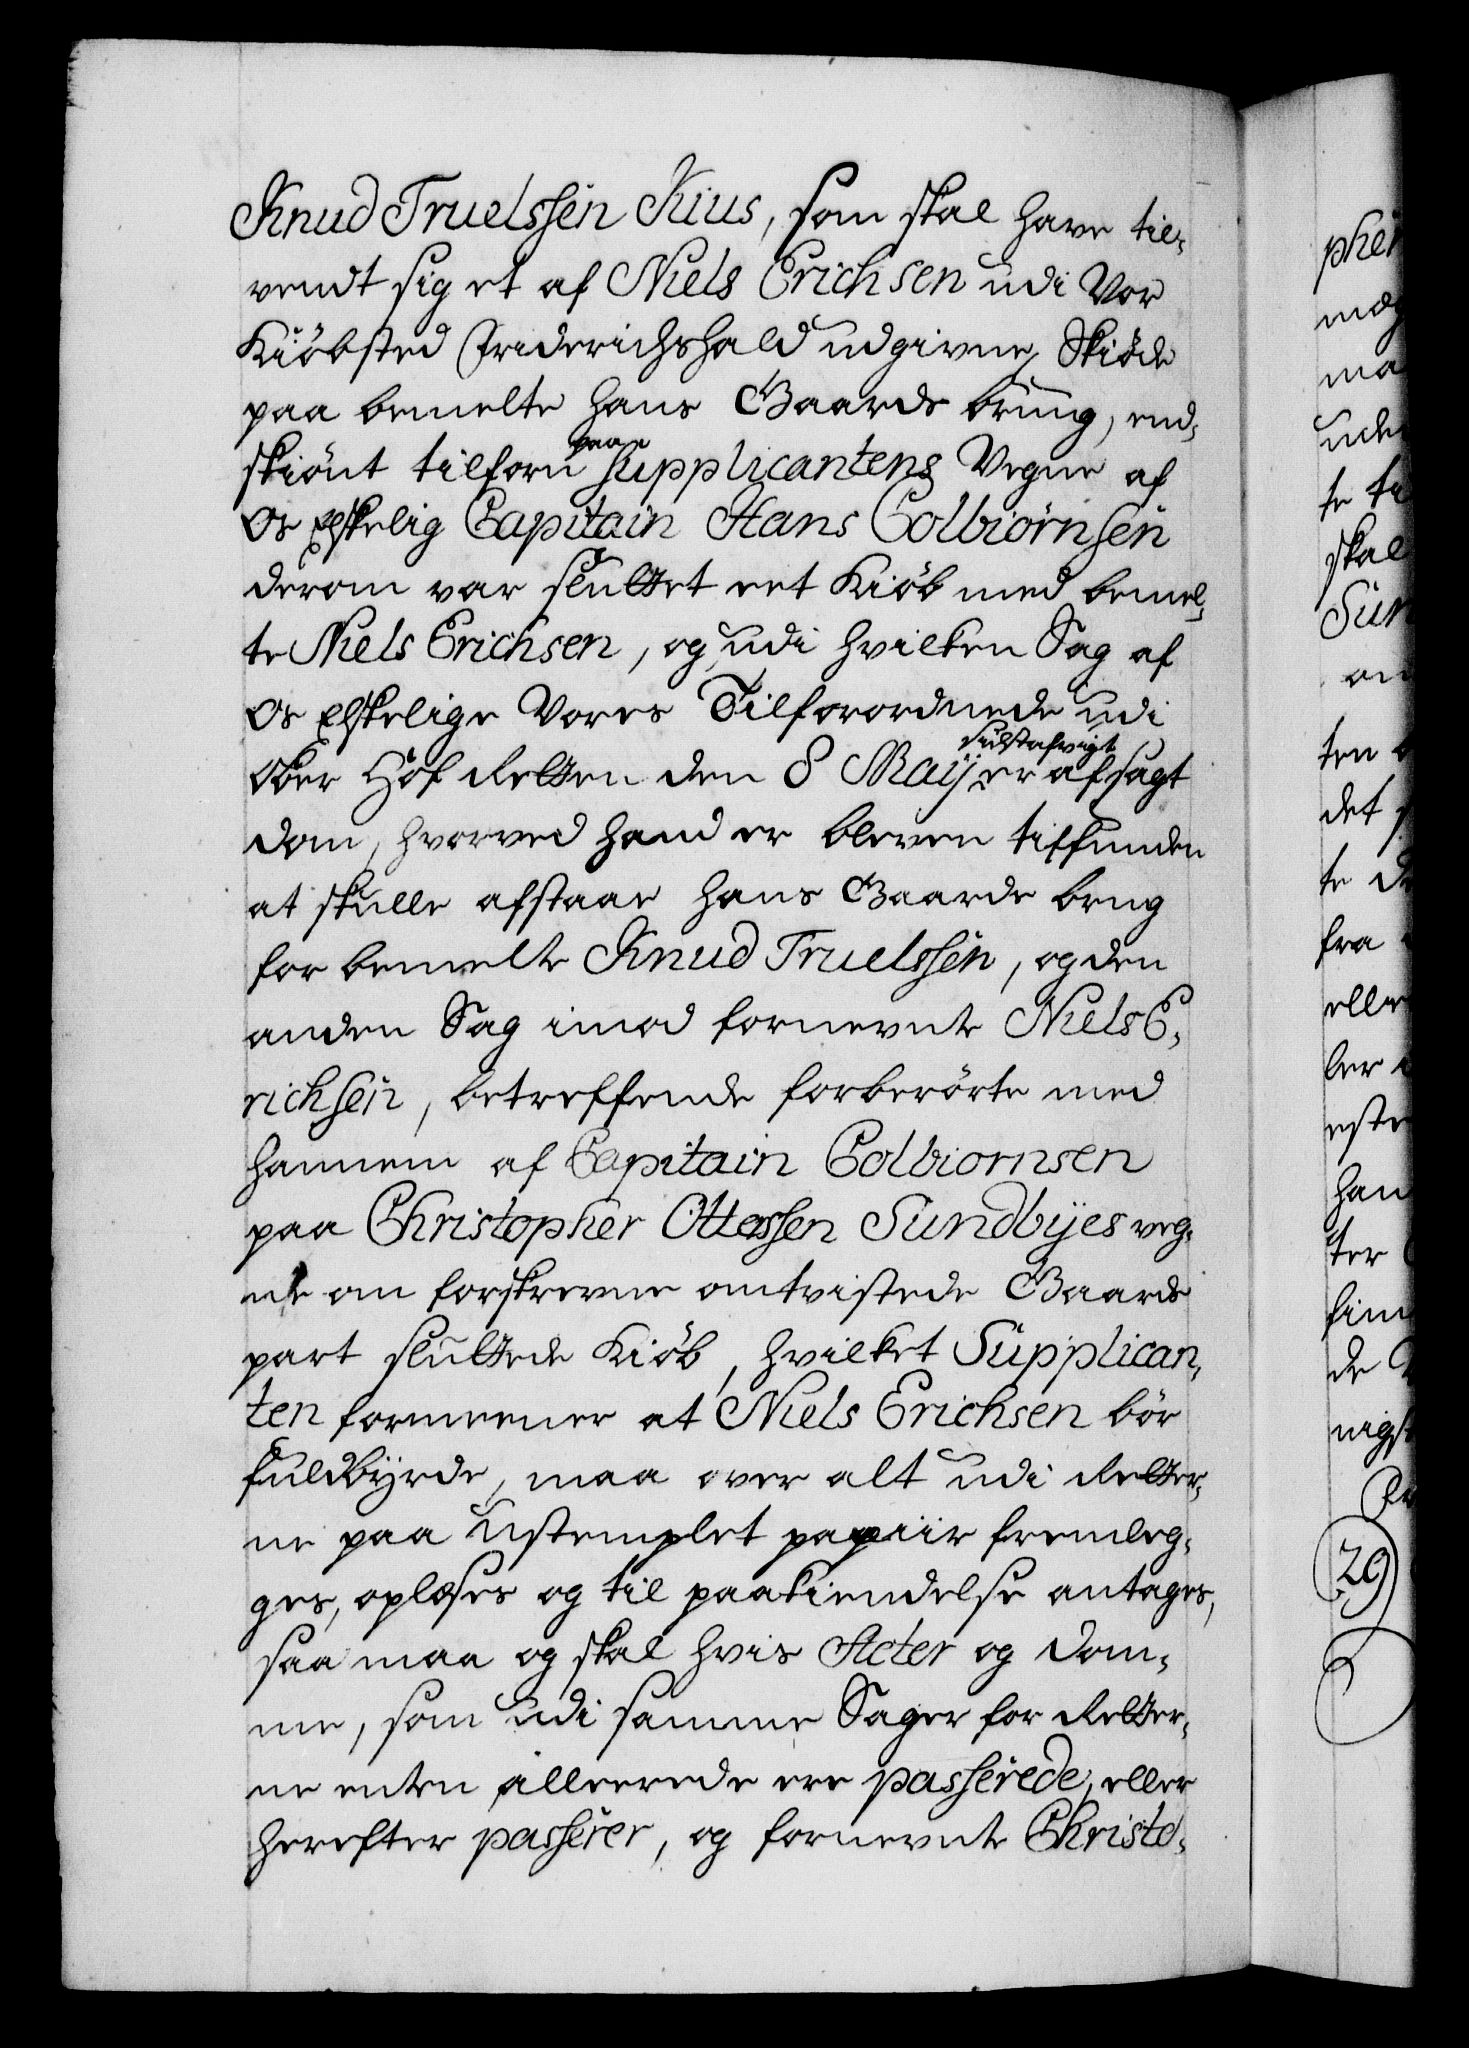 Knud Truelssen Kius, som skal have til,
vendt sig et af Niels Erichsen udi Vor
Kiöbsted Friderichshald udgivne Skiöde
paa bemelte hans Gaards brüug, end,
skiönt tilforn paa Supplicantens Vegne af
Os Elskelig Capitain Hans Colbiörnsen
derom var sluttet eet Kiöb med bemel,
te Niels Erichsen, og udi hvilken Sag af
Os Elskelige Vores Tilforordnede udi
Ober Hof Retten den 8 Maij sidstafvigt er afsagt
dom, hvorved hand er bleven tilfunden
at skulle afstaae hans Gaards brug
for bemelte Knud Truelssen, og den
anden Sag imod fornevnte Niels E,
richsen, betreffende forberörte med
hannem af Capitain Colbiornsen
paa Christopher Ottessen Sundbyes veg,
ne om forskrevne omtvistede Gaards
part sluttede Kiöb, hvilket Supplican,
ten formeener at Niels Erichsen bör
fuldbyrde, maa over alt udi Retter,
ne paa Ustemplet papiir fremleg,
ges, oplæses og til paakiendelse antages,
saa maa og skal hvis Acter og Dom,
me, som udi samme Sager for Retter,
ne enten allereede ere passerede, eller
herefter passerer, og fornevnte Christo,
phe
ma
ude
te ti
skal
Sun
om
ten
det
te
fra
eller
ber
este
han
ter
de
29